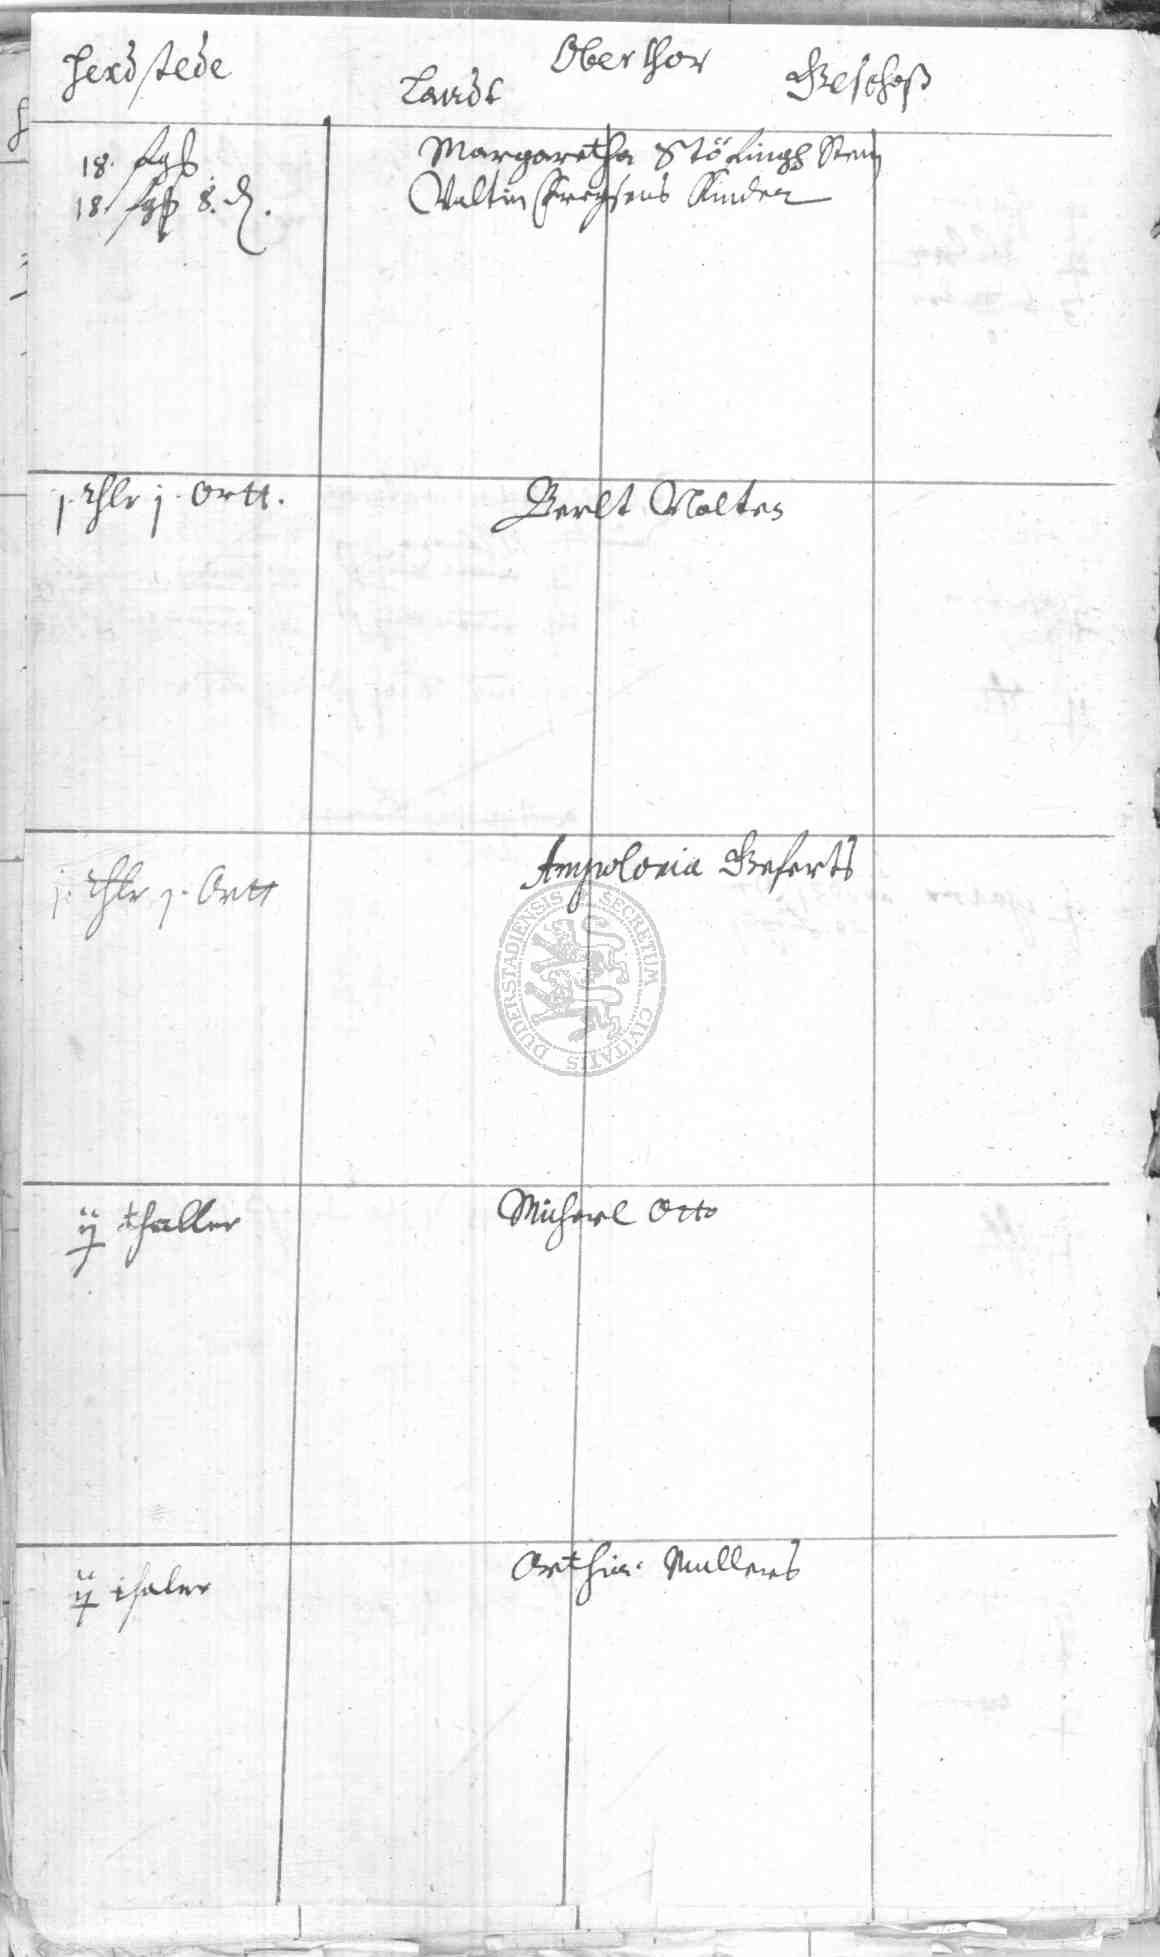 Herdstede Landt Oberthor Geschoß
18. fgß. Margaretha
18 fgß 8. d. Valtin Kinder
j. thlr j. Ortt. Berlt Nolten
j. thlr j. Ortt Ampolonia Geferts
SECRETUM CIVITATIS DUDERSTADIENSIS
ij thaller Michael Otto
ij thaler Orthia Mullers